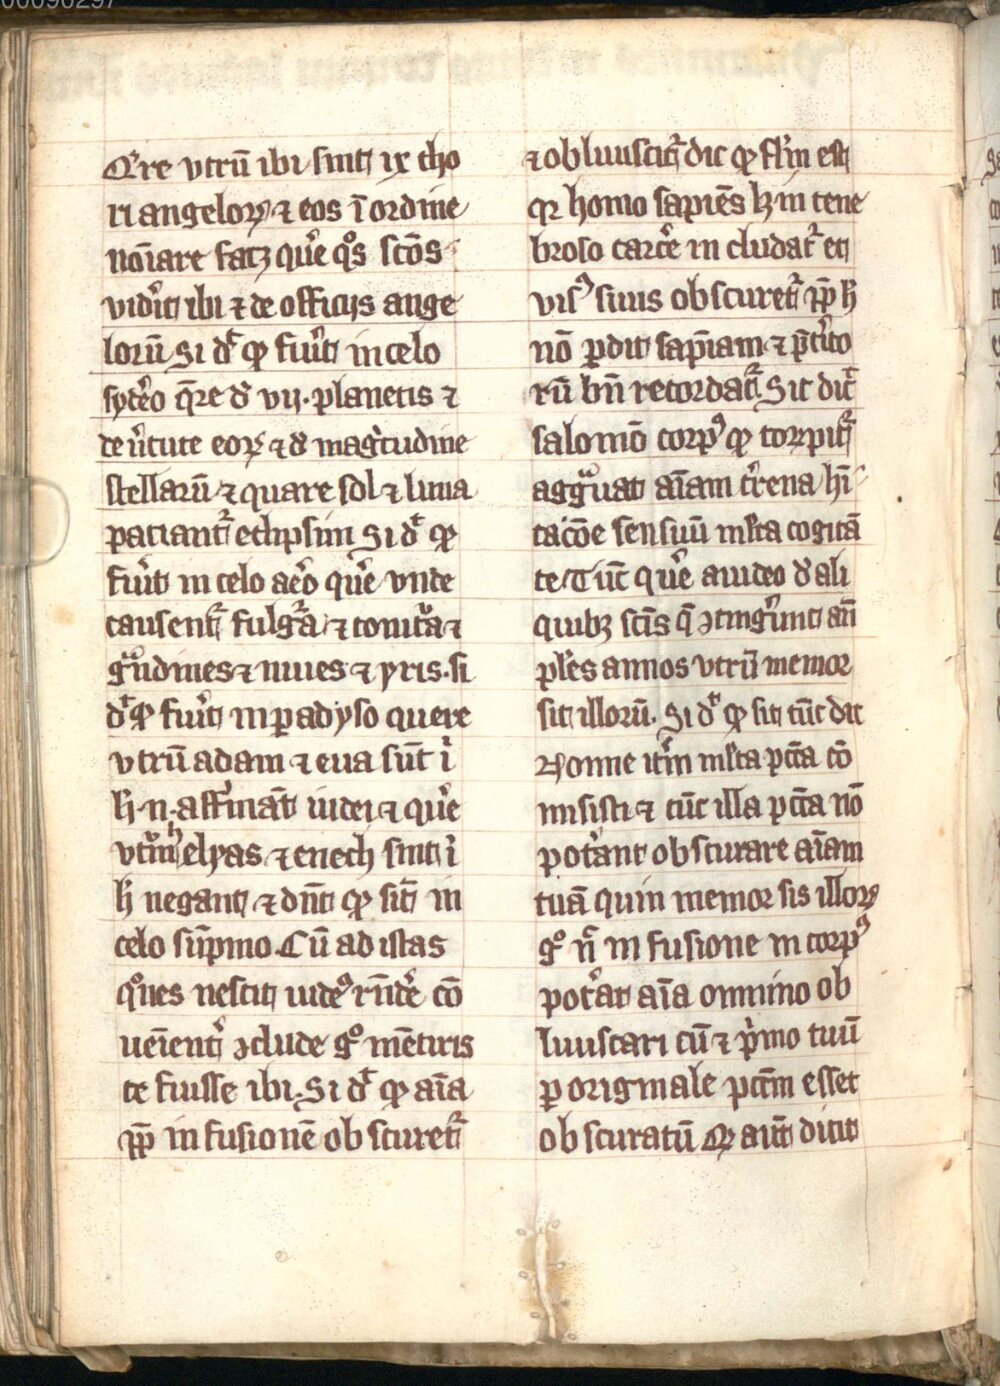 Q̾re vtrū ibi sint ix cho
ri angeloꝝ ⁊ eos ī ordine
noīare facꝫ que̾ qͦs scōs
vidi̾t ibi ⁊ de officijs ange
lorū Si dr̄ ꝙ fui̾t in celo
syde̾o q̄re de vij · planetis ⁊
de v̾tute eoꝝ ⁊ de magͥtudine
stellarū ⁊ quare sol ⁊ luna
paciant᷑ eclipsim Si dr̄ ꝙ
fui̾t in celo ae̾o que̾ vnde
causent᷑ fulgᷓa ⁊ tonitᷓa ⁊
gᷓndines ⁊ niues ⁊ yris · si
dr̄ ꝙ fui̾t in padyso quere
vtrū adam ⁊ eua sūt ī
h̄ · n · affi̾māt iudei ⁊ que̾
vtͥm elyas ⁊ enech sint ī
h̄ negant ⁊ dn̄t ꝙ sīt in
celo sup̄mo Cū ad istas
qͦnes nescit iudeꝰ rn̄de̾ cō
ueīent᷑ ꝯclude gͦ mētiris
te fuisse ibi · Si dr̄ ꝙ aīa
ꝓpꝑ in fusionē ob scuret᷑
⁊ obliuiscit᷑ dic ꝙ fl̄m est
qꝛ homo sapiēs lꝫ in tene
broso carce̾ in cludat᷑ et
visꝰ suus ob scuret᷑ ꝓpꝑ h̄
nō ꝑdit sap̄iam ⁊ p̄ti̾to
rū bn̄ recordat᷑ Sic dic̄
salomō corpꝰ ꝙ corrpit᷑
aggᷓuat aīam te̾rena hī
tacōe sensuū ml̄ta cogitā
te Tūc que̾ a iudeo de ali
quibꝫ sctīs q̄ ꝯtinge̾unt an̄
ples annos vtrū memor
sit illorū · Si dr̄ ꝙ sit tūc dic
Nonne itͥm ml̄ta pcta cō
misisti ⁊ tūc illa pcta nō
pote̾ant ob scurare aīam
tuā quin memor sis illoꝝ
gͦ n̄ in fusione in corpꝰ
pote̾at aīa omnino ob
liuiscari cū ⁊ pͥmo tuū
ꝑ originale pctm esset
ob scuratū Qꝛ aūt dicit